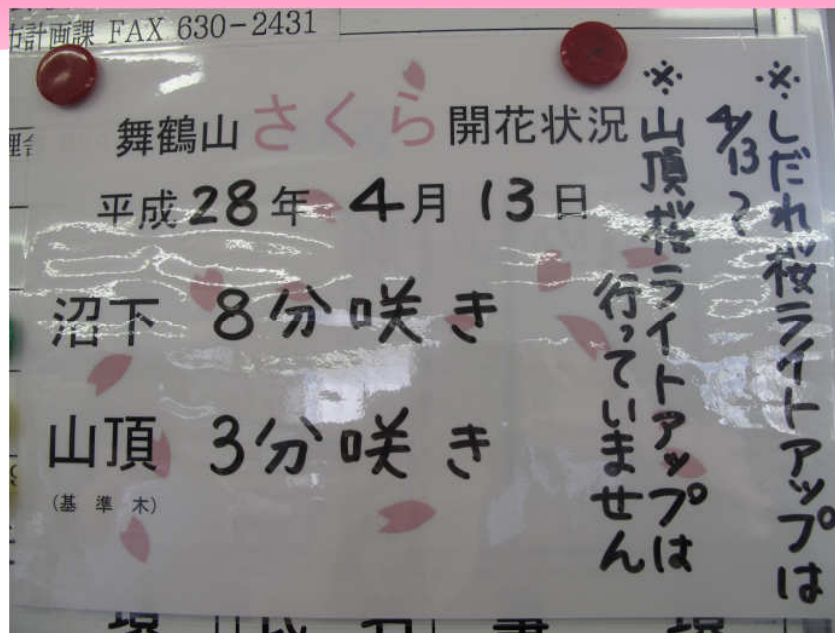 市計画課 FAX 630-2431
舞鶴山さくら開花状況
平成28年 4月 13日
沼下 8分咲き
山頂 3分咲き
(基準木)
※しだれ桜ライトアップは
4/13〜
※山頂桜ライトアップは
行っていません